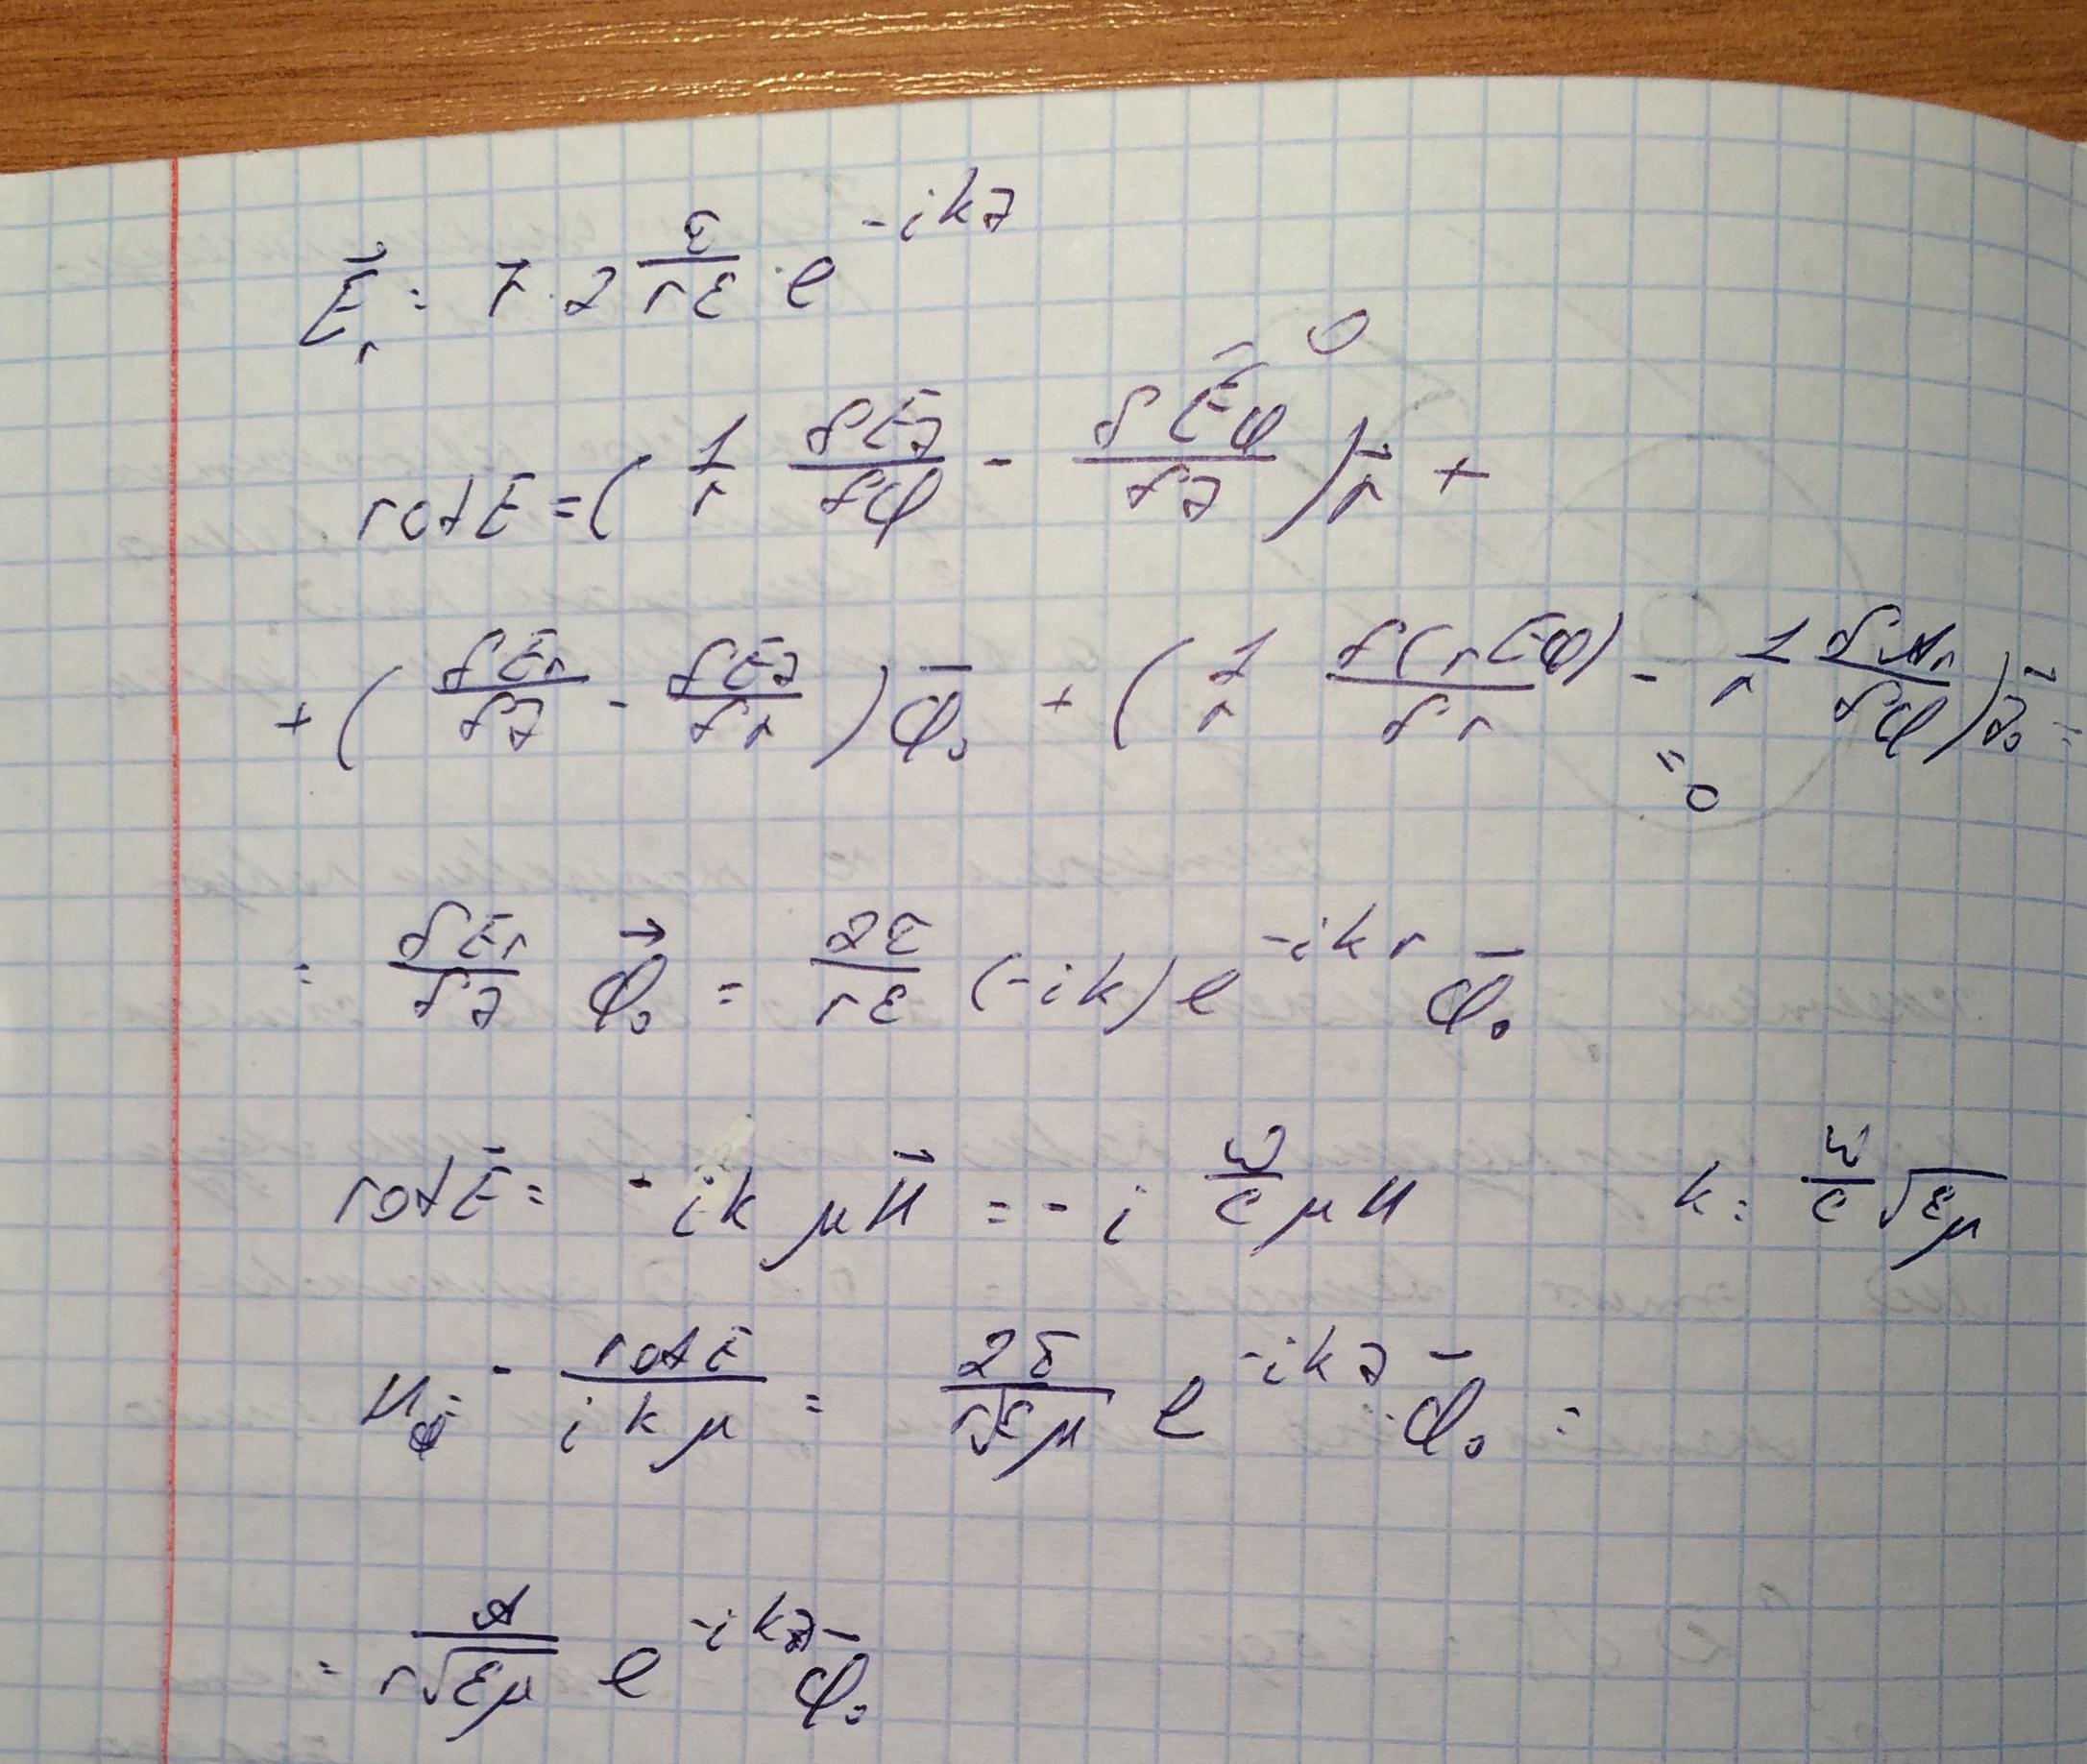 E⃗_r = r̄ · 2 τ/(rε) · e^{-ikz}
rotE = ( 1/r δE̅z/δφ - δE̅φ/δz ) r⃗ + 0
+ ( δE̅r/δz - δE̅z/δr ) φ̅₀ + ( 1/r δ(rEφ)/δr - 1/r δAr/δφ ) z̅₀ =
= 0
= δEr/δz φ⃗₀ = 2τ/(rε) (-ik) e^{-ikr} φ̅₀
rotE̅ = - ik μH⃗ = - i ω/c μH k = ω/c √εμ
H_φ = - rotE̅/(ikμ) = 2τ/(r√εμ) e^{-ikz} φ̅₀ =
= A/(r√εμ) e^{-ikz} φ̅₀